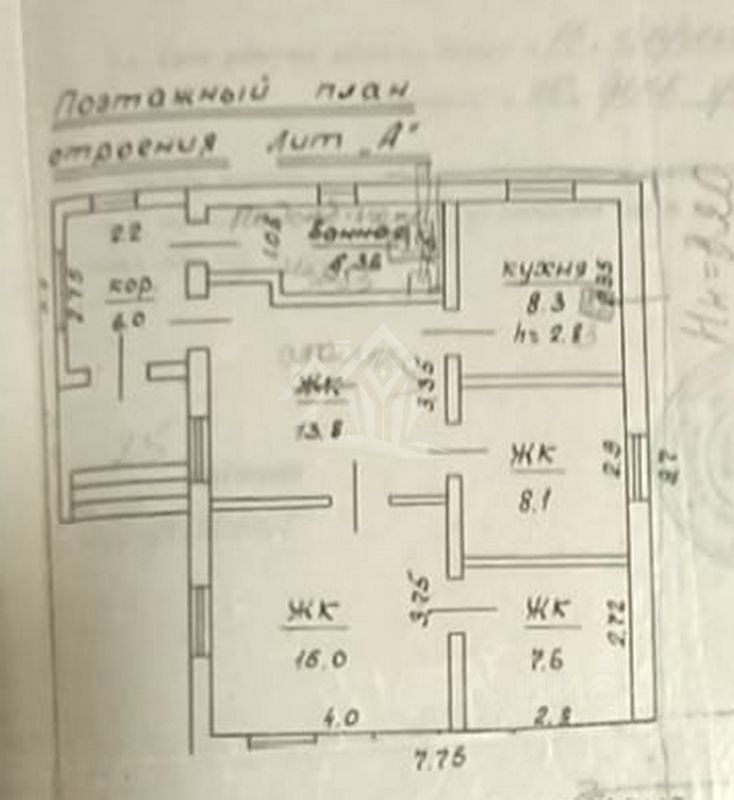 Поэтажный план
строения Лит „А"
2.2
1.08
Ванная
2.75
кор.
6.0
кухня
8.3
h=2.8
ЖК
13.8
3.35
ЖК
8.1
2.9
ЖК
16.0
3.75
ЖК
7.6
2.72
4.0
2.8
7.75